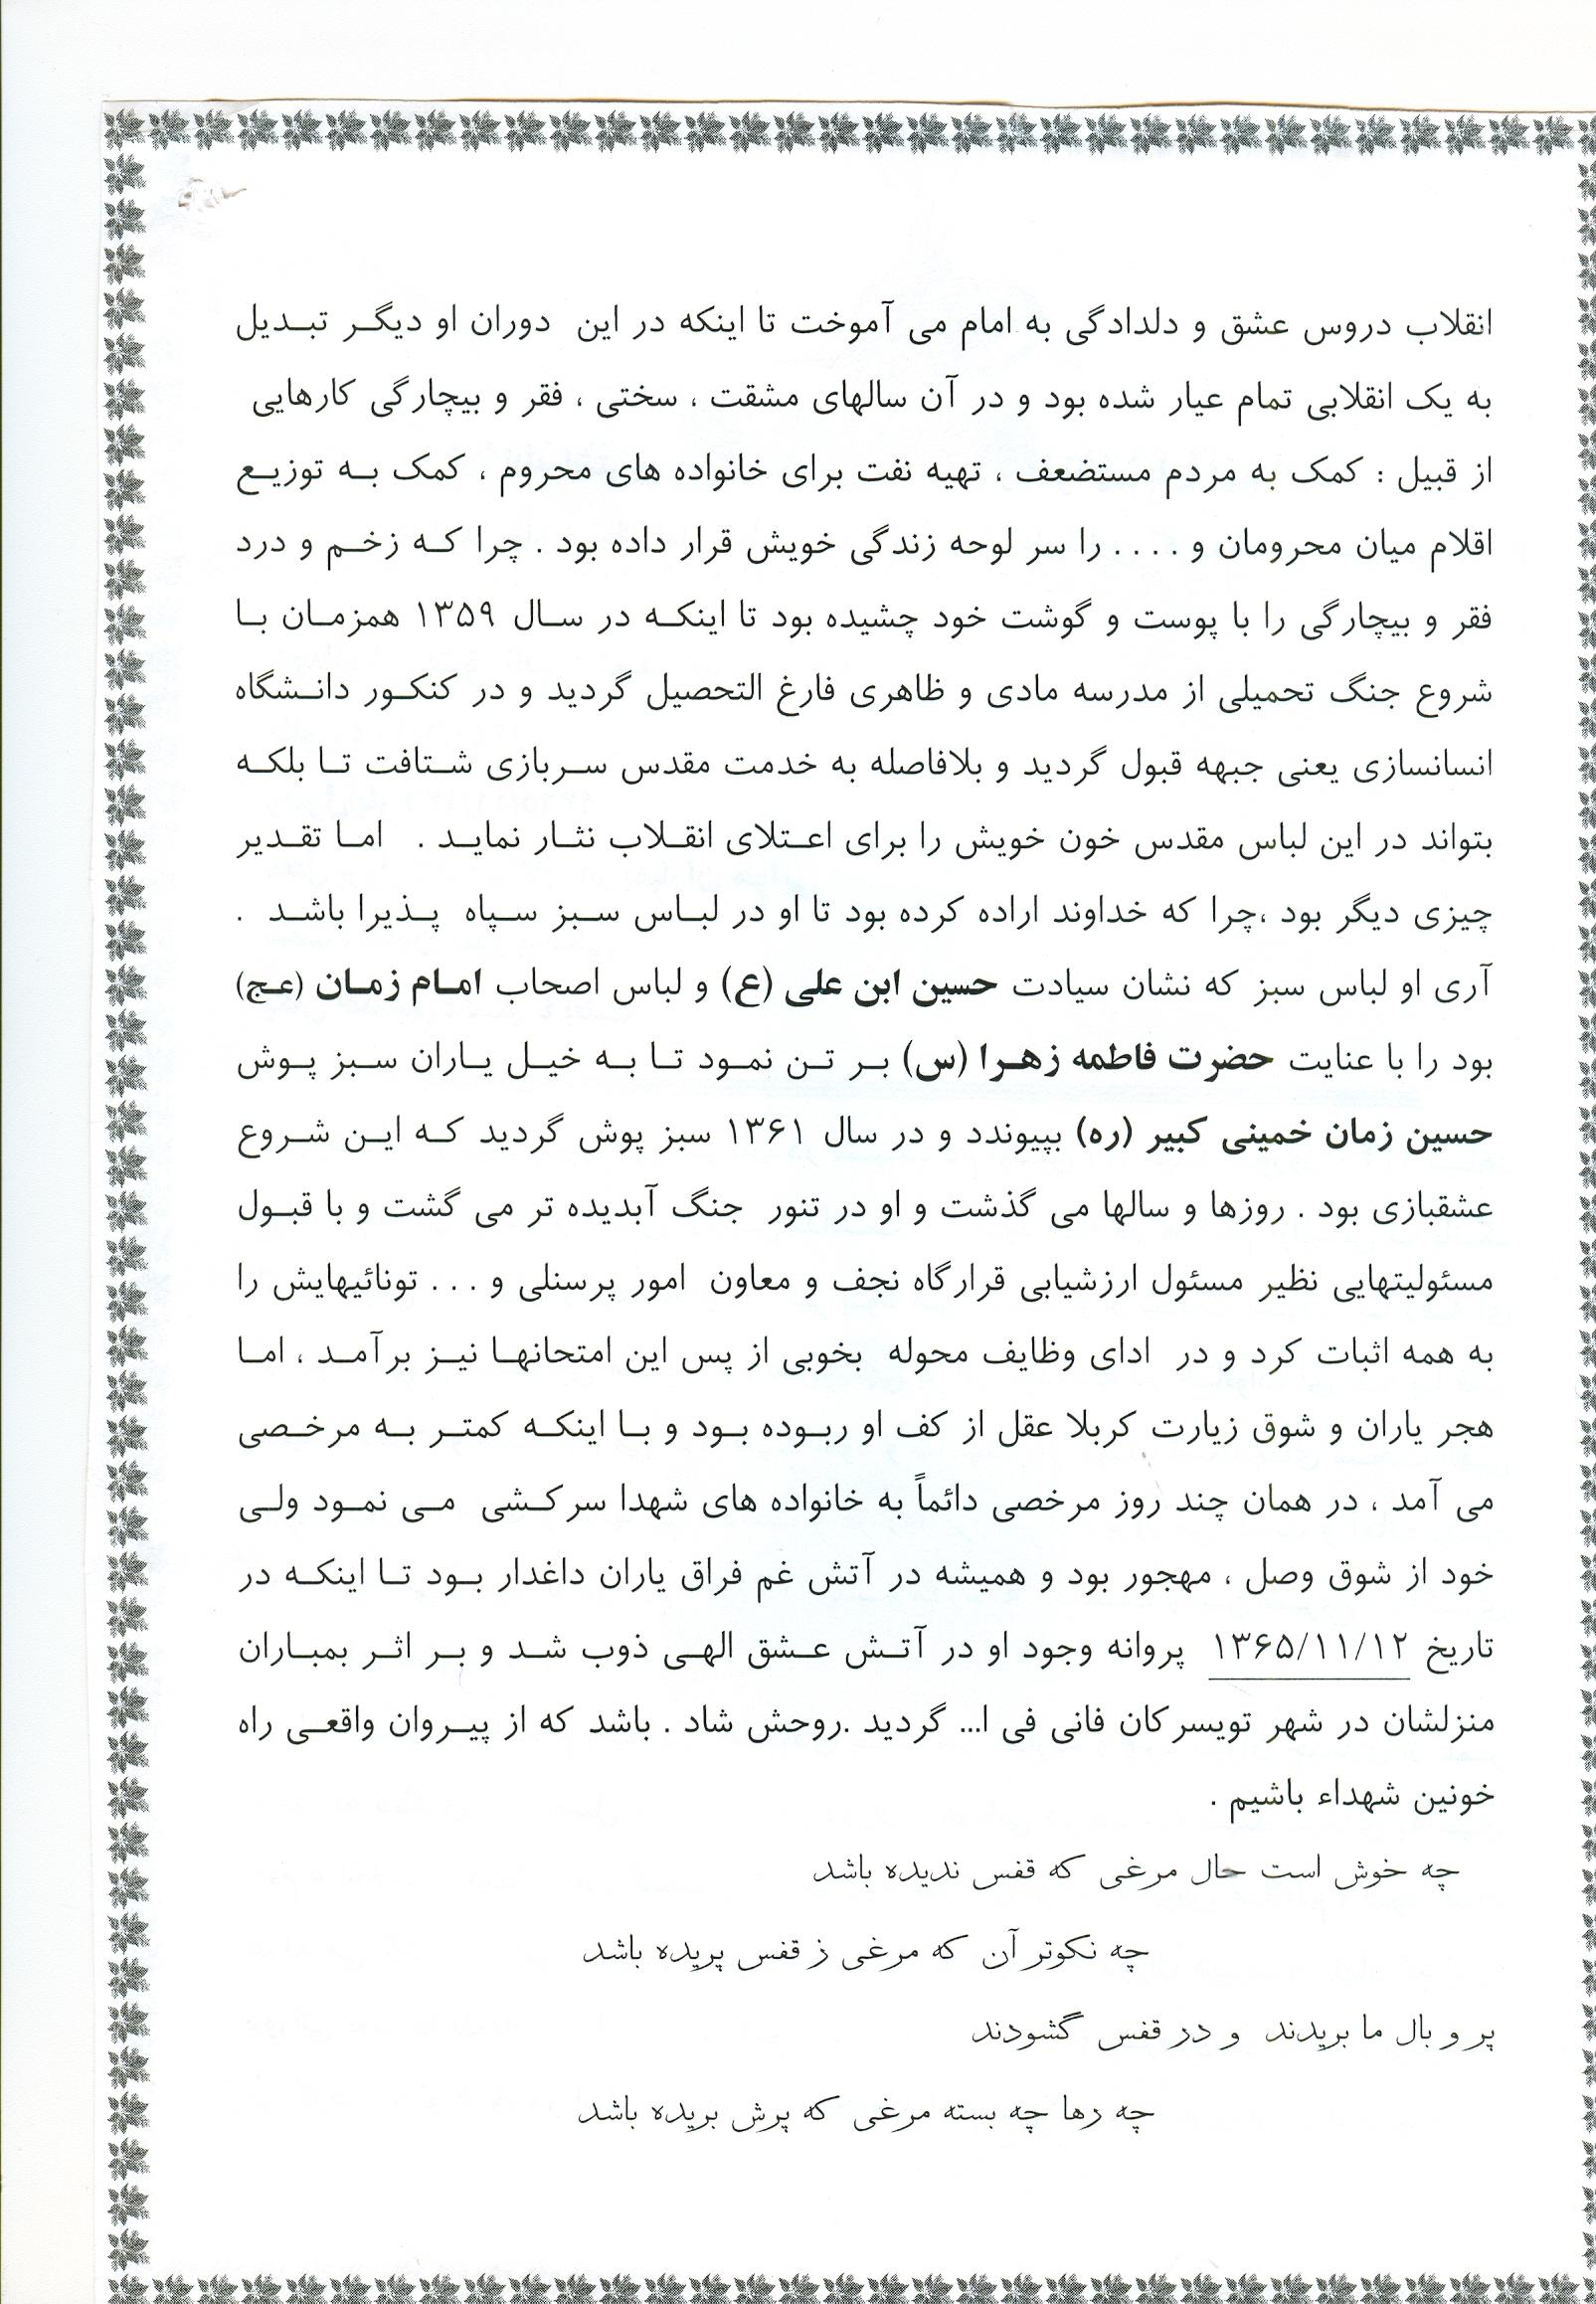 انقلاب دروس عشق و دلدادگی به امام می آموخت تا اینکه در این دوران او دیگر تبدیل
به یک انقلابی تمام عیار شده بود و در آن سالهای مشقت ، سختی ، فقر و بیچارگی کارهایی
از قبیل : کمک به مردم مستضعف ، تهیه نفت برای خانواده های محروم ، کمک به توزیع
اقلام میان محرومان و . . . . را سر لوحه زندگی خویش قرار داده بود . چرا که زخم و درد
فقر و بیچارگی را با پوست و گوشت خود چشیده بود تا اینکه در سال ۱۳۵۹ همزمان با
شروع جنگ تحمیلی از مدرسه مادی و ظاهری فارغ التحصیل گردید و در کنکور دانشگاه
انسانسازی یعنی جبهه قبول گردید و بلافاصله به خدمت مقدس سربازی شتافت تا بلکه
بتواند در این لباس مقدس خون خویش را برای اعتلای انقلاب نثار نماید . اما تقدیر
چیزی دیگر بود ،چرا که خداوند اراده کرده بود تا او در لباس سبز سپاه پذیرا باشد .
آری او لباس سبز که نشان سیادت حسین ابن علی (ع) و لباس اصحاب امام زمان (عج)
بود را با عنایت حضرت فاطمه زهرا (س) بر تن نمود تا به خیل یاران سبز پوش
حسین زمان خمینی کبیر (ره) بپیوندد و در سال ۱۳۶۱ سبز پوش گردید که این شروع
عشقبازی بود . روزها و سالها می گذشت و او در تنور جنگ آبدیده تر می گشت و با قبول
مسئولیتهایی نظیر مسئول ارزشیابی قرارگاه نجف و معاون امور پرسنلی و . . . تونائیهایش را
به همه اثبات کرد و در ادای وظایف محوله بخوبی از پس این امتحانها نیز برآمد ، اما
هجر یاران و شوق زیارت کربلا عقل از کف او ربوده بود و با اینکه کمتر به مرخصی
می آمد ، در همان چند روز مرخصی دائماً به خانواده های شهدا سرکشی می نمود ولی
خود از شوق وصل ، مهجور بود و همیشه در آتش غم فراق یاران داغدار بود تا اینکه در
تاریخ ۱۳۶۵/۱۱/۱۲ پروانه وجود او در آتش عشق الهی ذوب شد و بر اثر بمباران
منزلشان در شهر تویسرکان فانی فی ا... گردید .روحش شاد . باشد که از پیروان واقعی راه
خونین شهداء باشیم .
چه خوش است حال مرغی که قفس ندیده باشد
چه نکوتر آن که مرغی ز قفس پریده باشد
پر و بال ما بریدند و در قفس گشودند
چه رها چه بسته مرغی که پرش بریده باشد